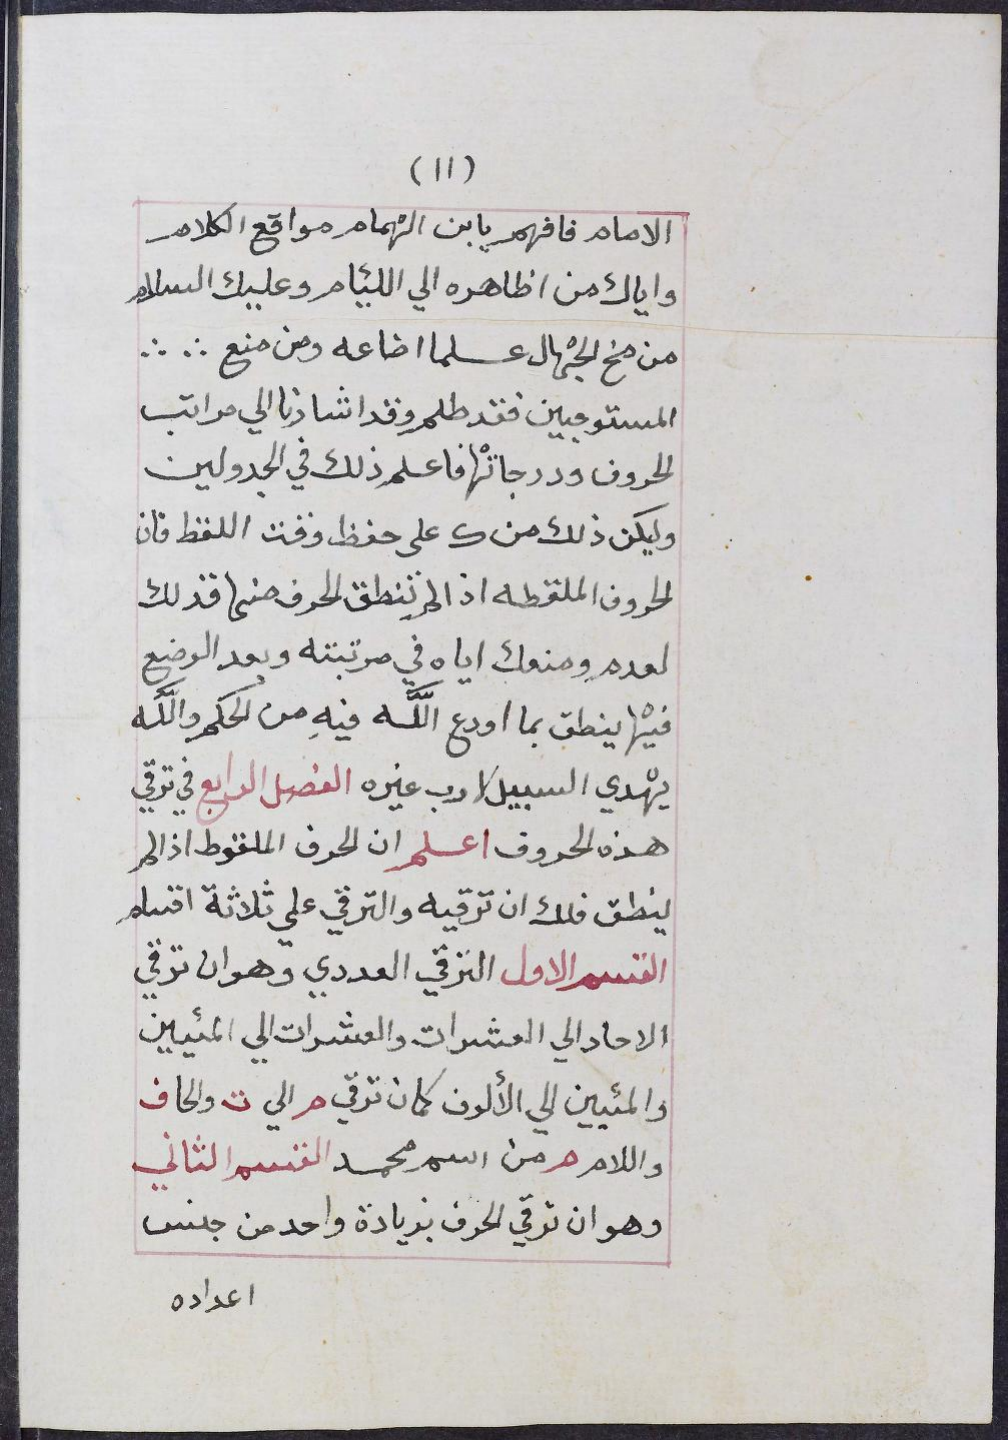 (١١)
الامام فافهم يابن الهمام مواقع الكلام
واياك من اظاهره الي الليئام وعليك السلام
من منح الجهال علما اضاعه ومن منع ∴ ∴
المستوجبين فقد ظلم وقد اشارنا الي مراتب
الحروف ودرجاتها فاعلم ذلك في الجدولين
وليكن ذلك من ك على حفظ وقت اللقط فان
الحروف الملقطه اذا لم تنطق لحرف منها فذلك
لعدم وضعك اياه في مرتبته وبعد الوضع
فيها ينطق بما اودع اللّه فيهِ من الحكم واللّه
يهدي السبيل لا رب غيره الفصل الرابع في ترقي
هذه الحروف اعلم ان الحرف الملقوط اذا لم
ينطق فلك ان ترقيه والترقي علي ثلاثة اقسام
القسم الاول الترقي العددي وهو ان ترقي
الاحاد الي العشرات والعشرات الي المئيين
والمئيين الي الألوف كمان ترقي م الي ت والحا ف
واللام م من اسم محمد القسم الثاني
وهو ان ترقي الحرف بزيادة واحد من جنس
اعداده